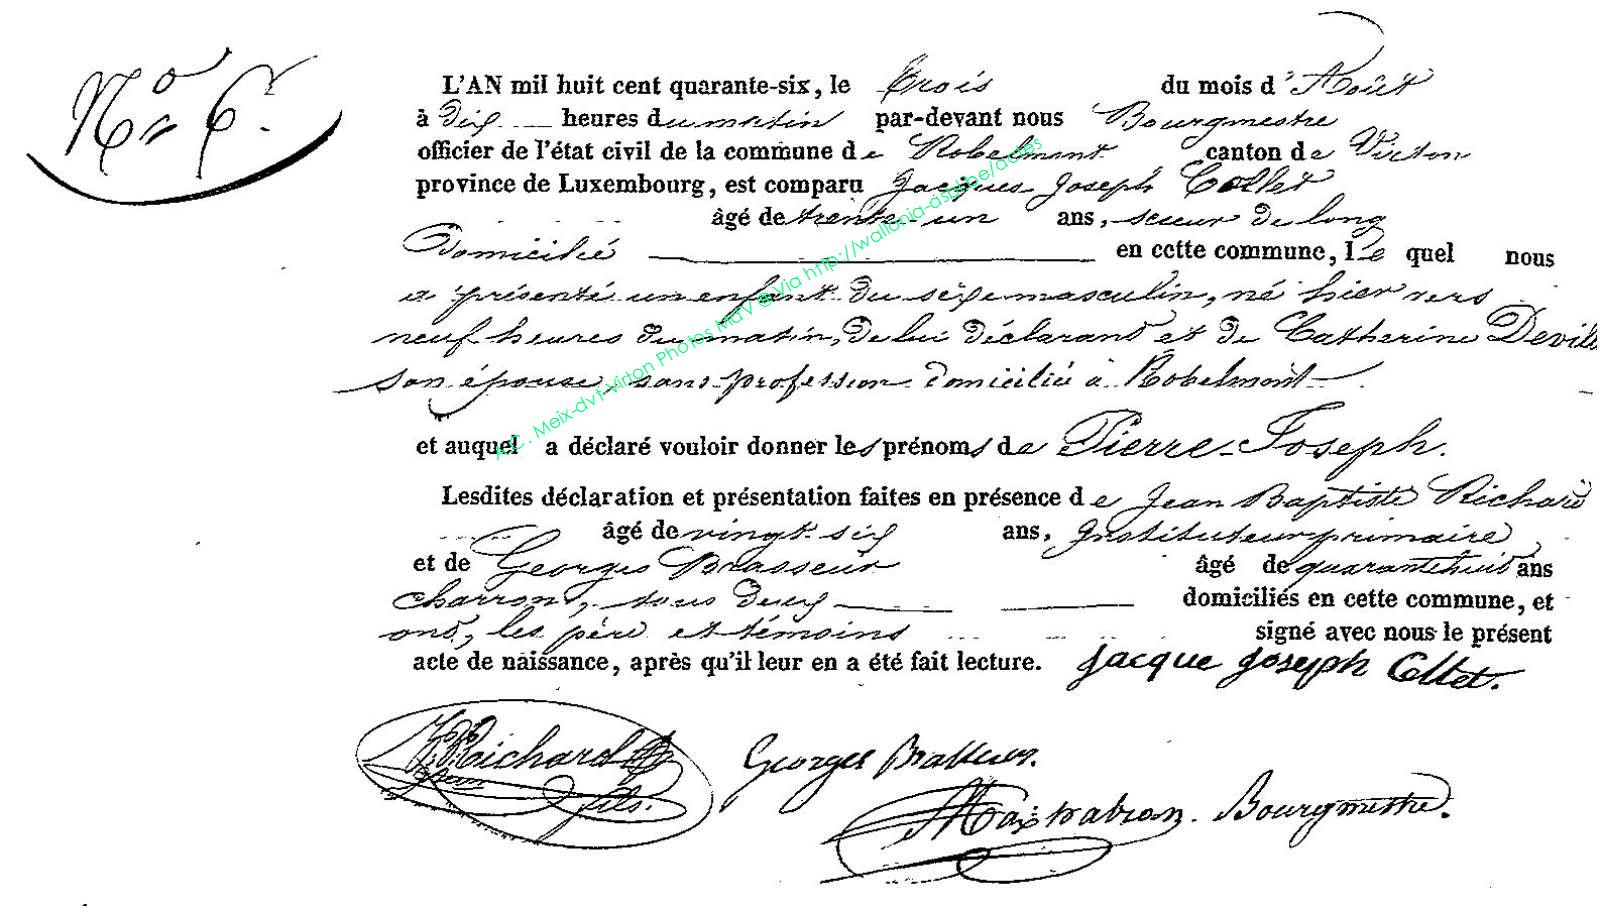 N° 6.
L'AN mil huit cent quarante-six, le trois du mois d'Août
à dix heures du matin par-devant nous Bourgmestre
officier de l'état civil de la commune de Robelmont canton de Virton
province de Luxembourg, est comparu Jacques Joseph Collet
âgé de trente-un ans, scieur de long
Domicilié en cette commune, Le quel nous
a présenté un enfant du sexe masculin, né hier vers
neuf heures du matin, de lui déclarant et de Catherine Devill
son épouse, sans profession domiciliée à Robelmont
et auquel a déclaré vouloir donner les prénoms de Pierre-Joseph.
Lesdites déclaration et présentation faites en présence de Jean Baptiste Richard
âgé de vingt-six ans, Instituteur primaire,
et de Georges Brasseur âgé de quarante huit ans
charron, tous deux domiciliés en cette commune, et
ont, les père et témoins signé avec nous le présent
acte de naissance, après qu'il leur en a été fait lecture. Jacque Joseph Collet.
Richard
fils.
Georges Brasseur.
Bourgmestre.
A.C. Meix-dvt-Virton Photos MdV @ Via http://wallonia-asbl.be/actes